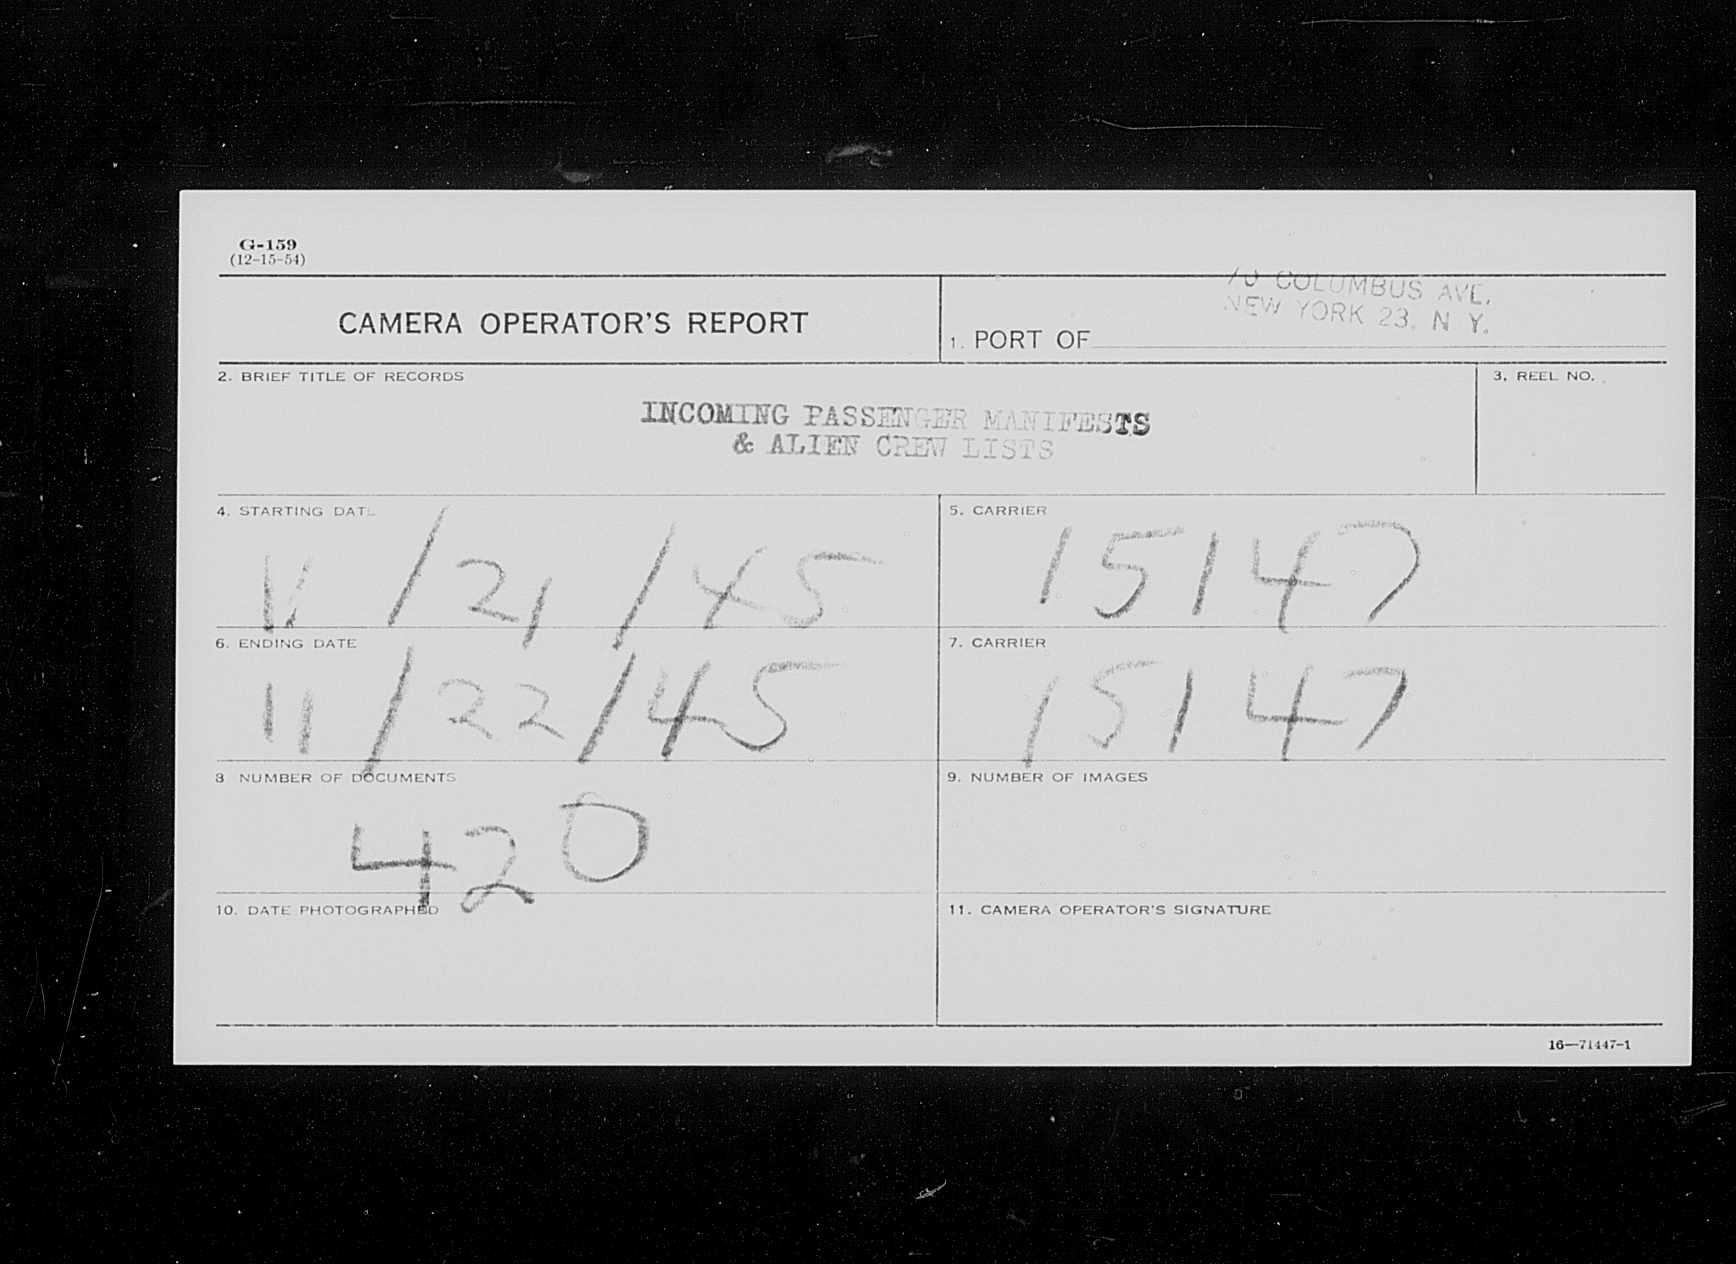 G-159
(12-15-54)
CAMERA OPERATOR'S REPORT
70 COLUMBUS AVE.
NEW YORK 23, N Y.
1. PORT OF
2. BRIEF TITLE OF RECORDS
3. REEL NO.
INCOMING PASSENGER MANIFESTS
& ALIEN CREW LISTS
4. STARTING DATE
5. CARRIER
11/21/45
15147
6. ENDING DATE
7. CARRIER
11/22/45
15147
8 NUMBER OF DOCUMENTS
9. NUMBER OF IMAGES
420
10. DATE PHOTOGRAPHED
11. CAMERA OPERATOR'S SIGNATURE
16—71447-1